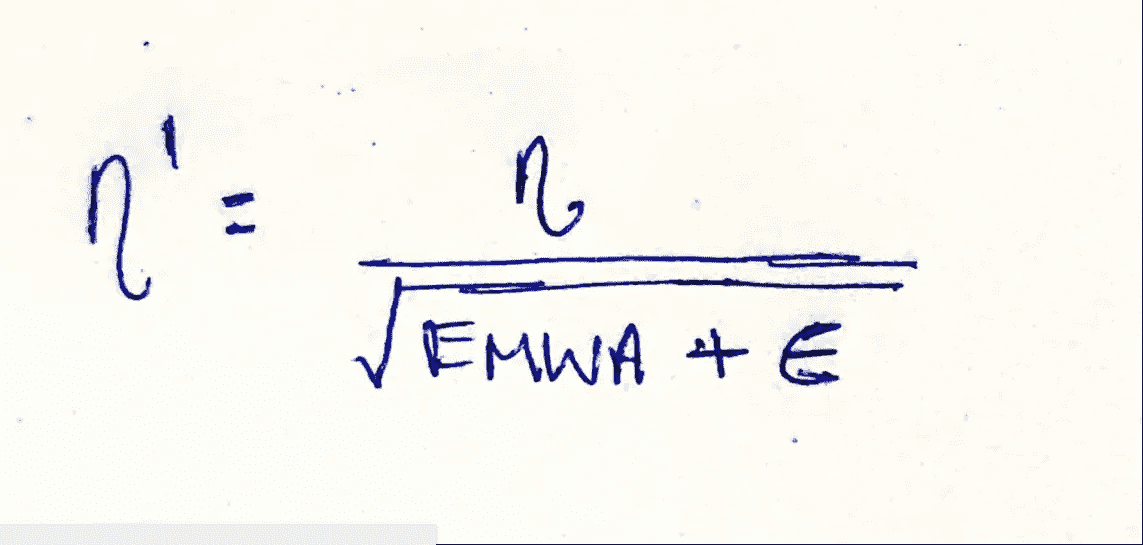 η' = η / √(EMWA + ϵ)